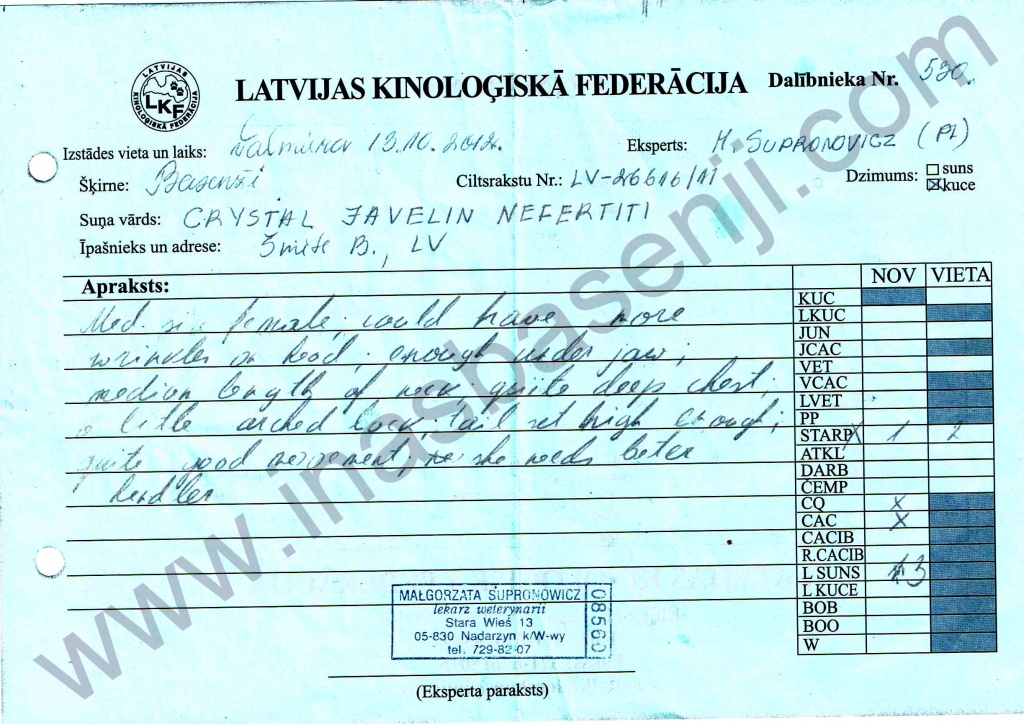 LATVIJAS KINOLOĢISKĀ FEDERĀCIJA
LKF
LATVIJAS KINOLOĢISKĀ FEDERĀCIJA Dalībnieka Nr. 530.
Izstādes vieta un laiks: Valmiera 13.10.2012. Eksperts: M. SUPRONOVICZ (PL)
Šķirne: Basenži Ciltsrakstu Nr.: LV-26616/11 Dzimums: suns
kuce
Suņa vārds: CRYSTAL JAVELIN NEFERTITI
Īpašnieks un adrese: Šmite B., LV
Apraksts: NOV VIETA
KUC
LKUC
Med. size female; could have more
JUN
wrinkles on head; enough under jaw;
JCAC
VET
median length of neck quite deep chest;
VCAC
LVET
a litle arched back; tail set high enough;
PP
STARP X 1 2
quite good movement, she needs beter
ATKL
DARB
hendler
ČEMP
CQ X
CAC X
CACIB
R.CACIB
L SUNS 3
L KUCE
BOB
BOO
W
MAŁGORZATA SUPRONOWICZ
lekarz weterynarii
Stara Wieś 13
05-830 Nadarzyn k/W-wy
tel. 729-82-07
08560
(Eksperta paraksts)
www.inasbasenji.com